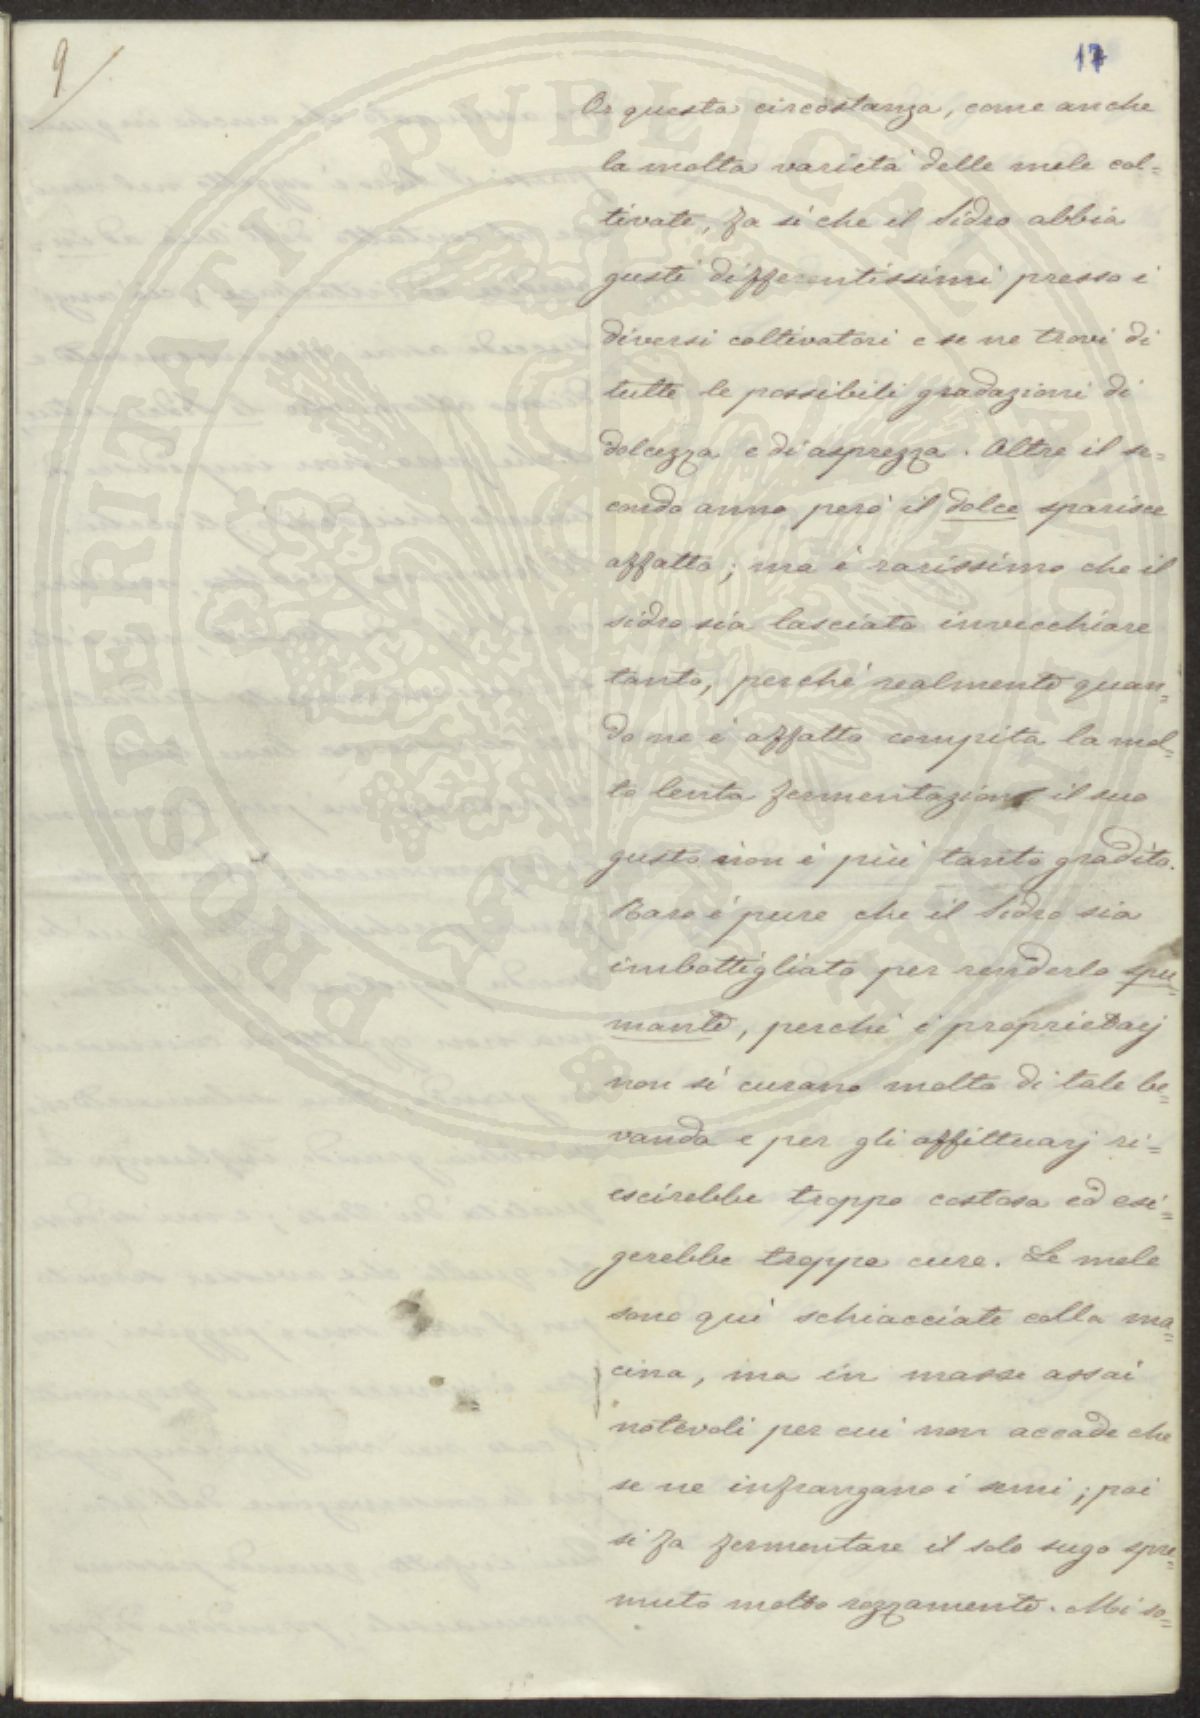 9
17
Or questa circostanza, come anche
la molta varietà delle mele col=
tivate, fa sì che il Sidro abbia
gusti differentissimi presso i
diversi coltivatori e se ne trovi di
tutte le possibili gradazioni di
dolcezza e di asprezza. Oltre il se=
condo anno però il dolce sparisce
affatto; ma è rarissimo che il
sidro sia lasciato invecchiare
tanto, perchè realmente quan=
do ne è affatto compita la mol=
to lenta fermentazione il suo
gusto non è più tanto gradito.
Raro è pure che il Sidro sia
imbottigliato per renderlo spu=
mante, perchè i proprietarj
non si curano molto di tale be=
vanda e per gli affittuarj ri=
escirebbe troppo costosa ed esi=
gerebbe troppe cure. Le mele
sono quì schiacciate colla ma=
cina, ma in masse assai
notevoli per cui non accade che
se ne infrangano i semi; poi
si fa fermentare il solo sugo spre=
muto molto rozzamente. Mi so=
PROSPERITATI PUBLICAE